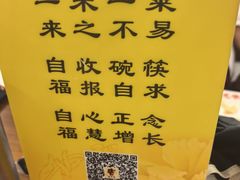 来之不易
自收碗筷
福报自求
自心正念
福慧增长